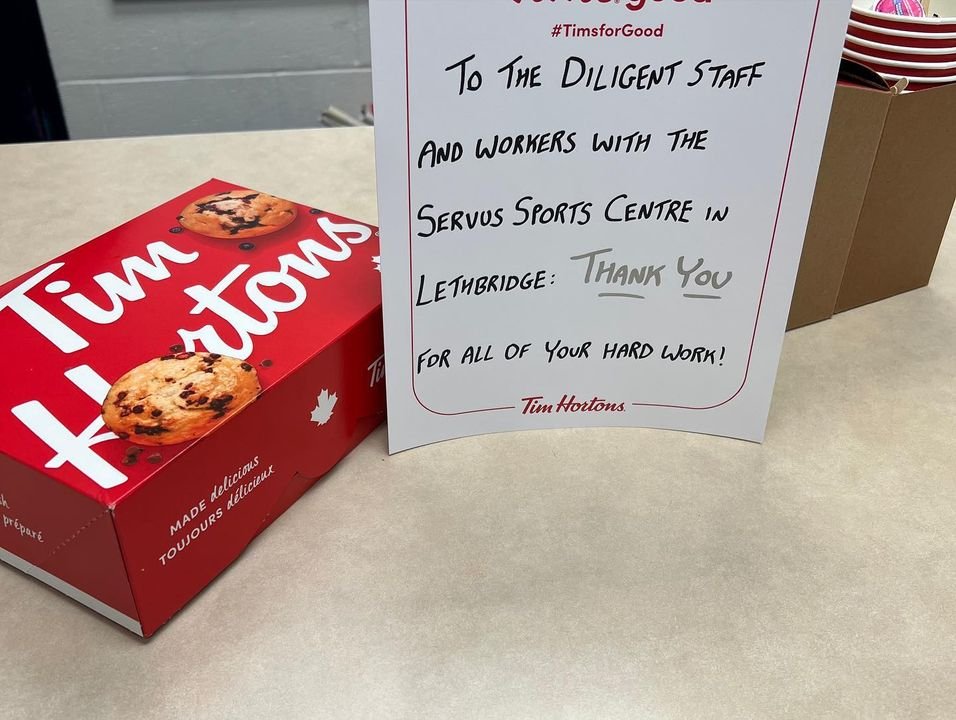 #TimsforGood
TO THE DILIGENT STAFF
AND WORKERS WITH THE
SERVUS SPORTS CENTRE IN
LETHBRIDGE: THANK YOU
FOR ALL OF YOUR HARD WORK!
Tim Hortons
Tim
Hortons
MADE delicious
TOUJOURS délicieux
préparé
Tim